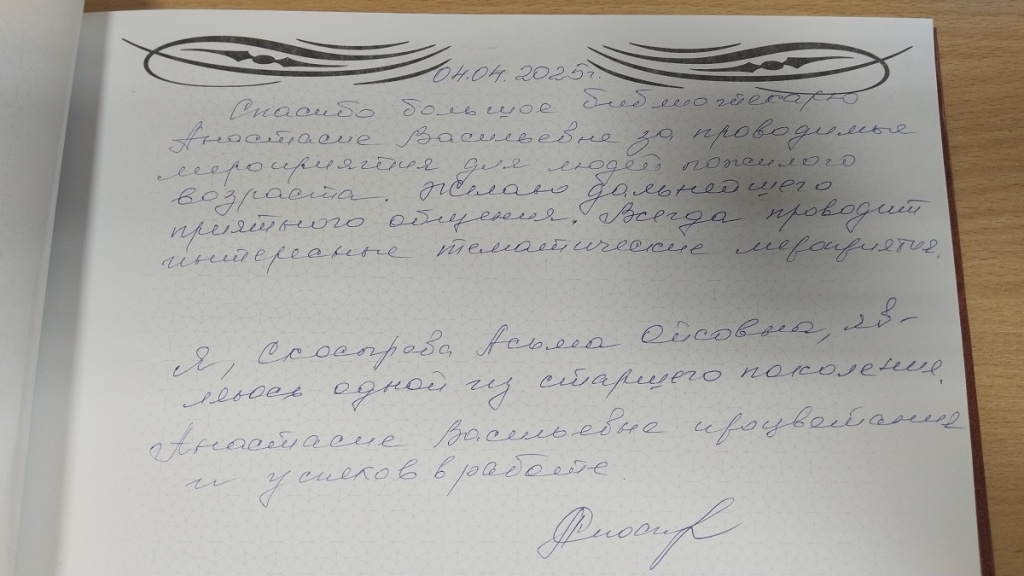 04.04.2025г.
Спасибо большое библиотекарю
Анастасие Васильевне за проводимые
мероприятия для людей пожилого
возраста. Желаю дальнейшего
приятного общения. Всегда проводит
интересные тематические мероприятия.
Я, Скосырева Асьма Ойсовна, яв-
ляюсь одной из старшего поколения.
Анастасие Васильевне процветания
и успехов в работе.